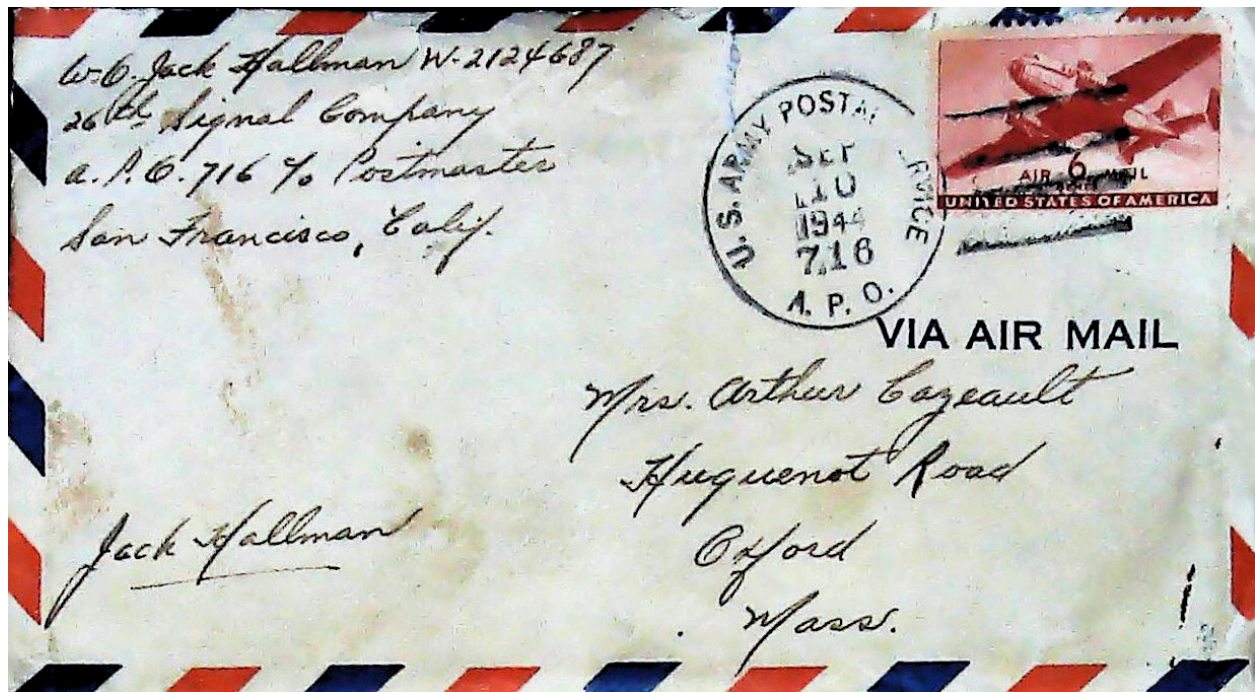 W.O. Jack Hallman W-2124687
26th Signal Company
A.P.O. 716 c/o Postmaster
San Francisco, Calif.
U.S. ARMY POSTAL SERVICE
SEP
10
1944
716
A. P. O.
AIR 6 MAIL
CENTS
UNITED STATES OF AMERICA
VIA AIR MAIL
Mrs. Arthur Cazeault
Huguenot Road
Oxford
Mass.
Jack Hallman